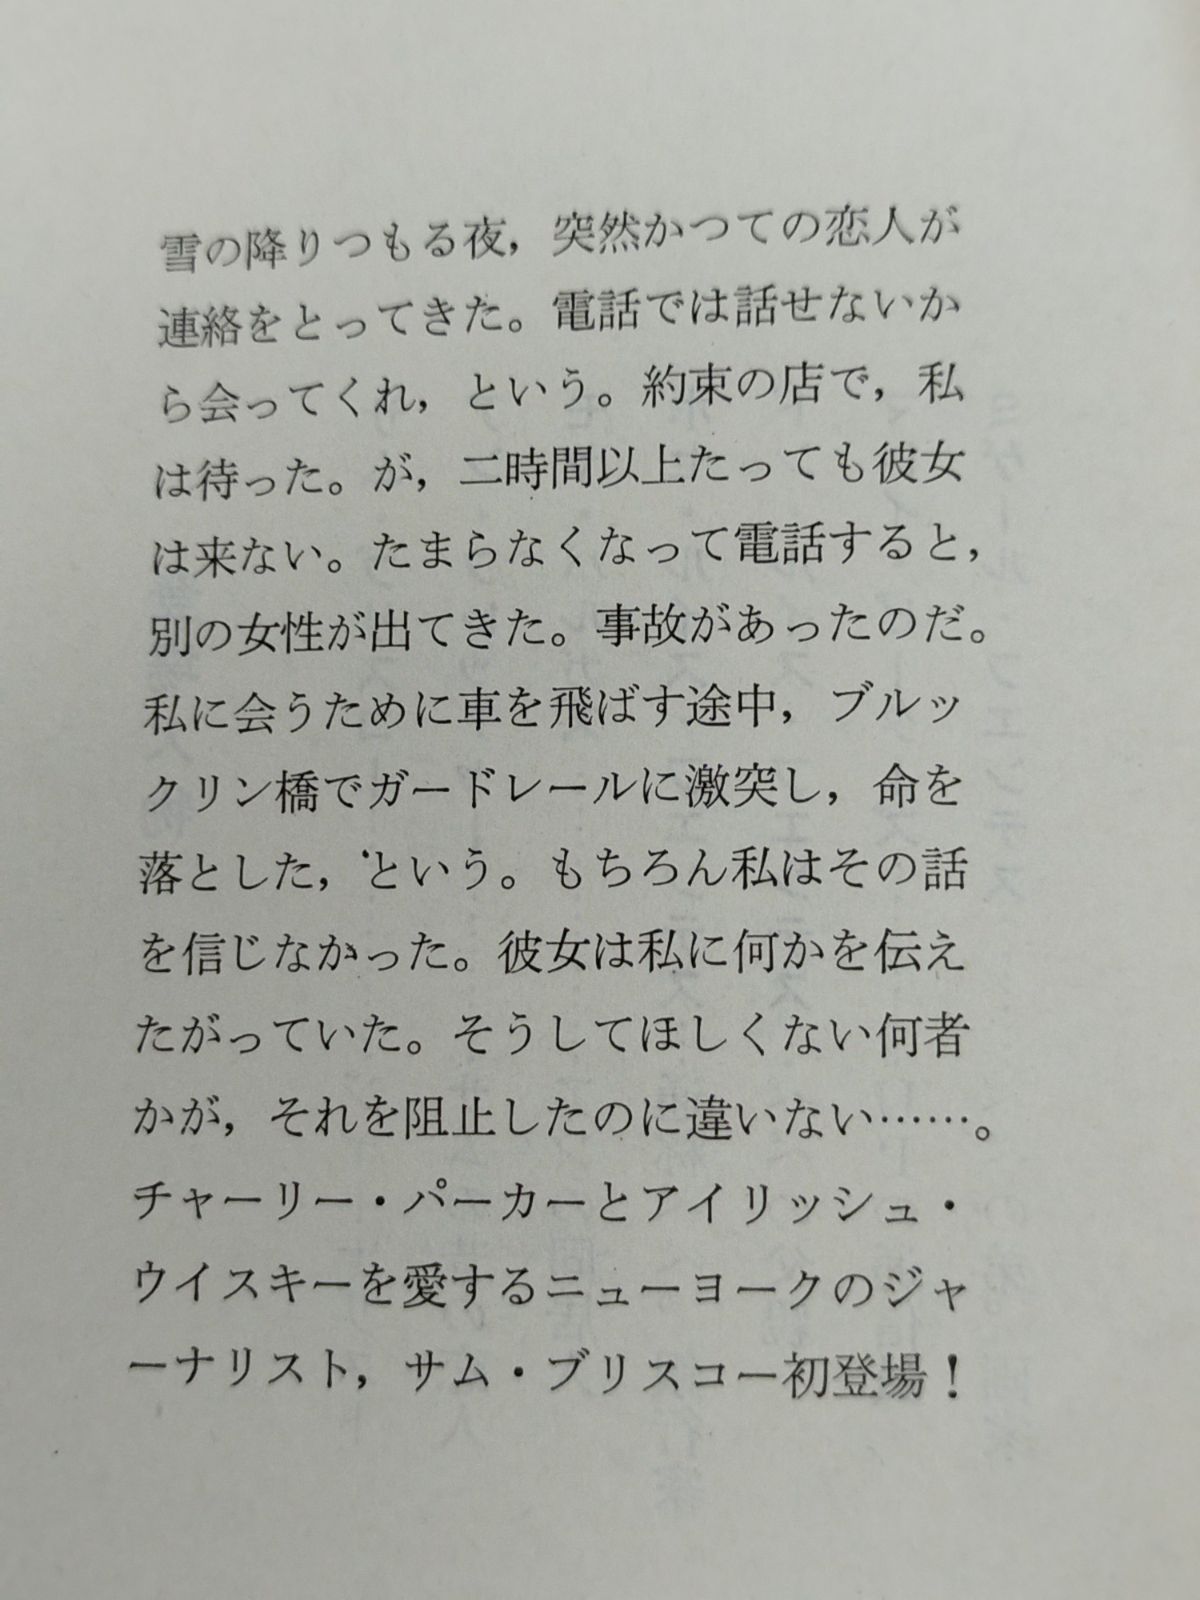 雪の降りつもる夜，突然かつての恋人が
連絡をとってきた。電話では話せないか
ら会ってくれ，という。約束の店で，私
は待った。が，二時間以上たっても彼女
は来ない。たまらなくなって電話すると，
別の女性が出てきた。事故があったのだ。
私に会うために車を飛ばす途中，ブルッ
クリン橋でガードレールに激突し，命を
落とした，という。もちろん私はその話
を信じなかった。彼女は私に何かを伝え
たがっていた。そうしてほしくない何者
かが，それを阻止したのに違いない……。
チャーリー・パーカーとアイリッシュ・
ウイスキーを愛するニューヨークのジャ
ーナリスト，サム・ブリスコー初登場！